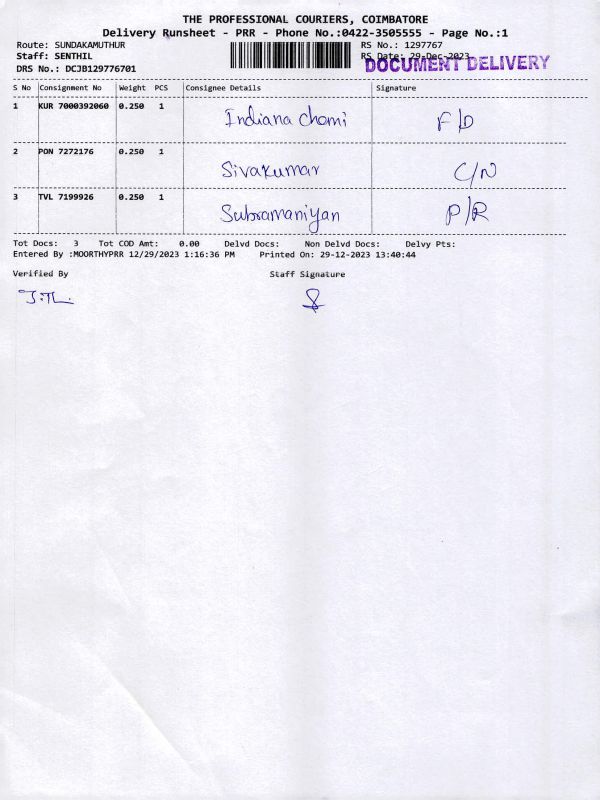 THE PROFESSIONAL COURIERS, COIMBATORE
Delivery Runsheet - PRR - Phone No.:0422-3505555 - Page No.:1
Route: SUNDAKAMUTHUR RS No.: 1297767
Staff: SENTHIL RS Date: 29-Dec-2023
DOCUMENT DELIVERY
DRS No.: DCJB129776701
S No Consignment No Weight PCS Consignee Details Signature
1 KUR 7000392060 0.250 1 Indiana chomi F/D
2 PON 7272176 0.250 1 Sivakumar C/N
3 TVL 7199926 0.250 1 Subramaniyan P/R
Tot Docs: 3 Tot COD Amt: 0.00 Delvd Docs: Non Delvd Docs: Delvy Pts:
Entered By :MOORTHYPRR 12/29/2023 1:16:36 PM Printed On: 29-12-2023 13:40:44
Verified By Staff Signature